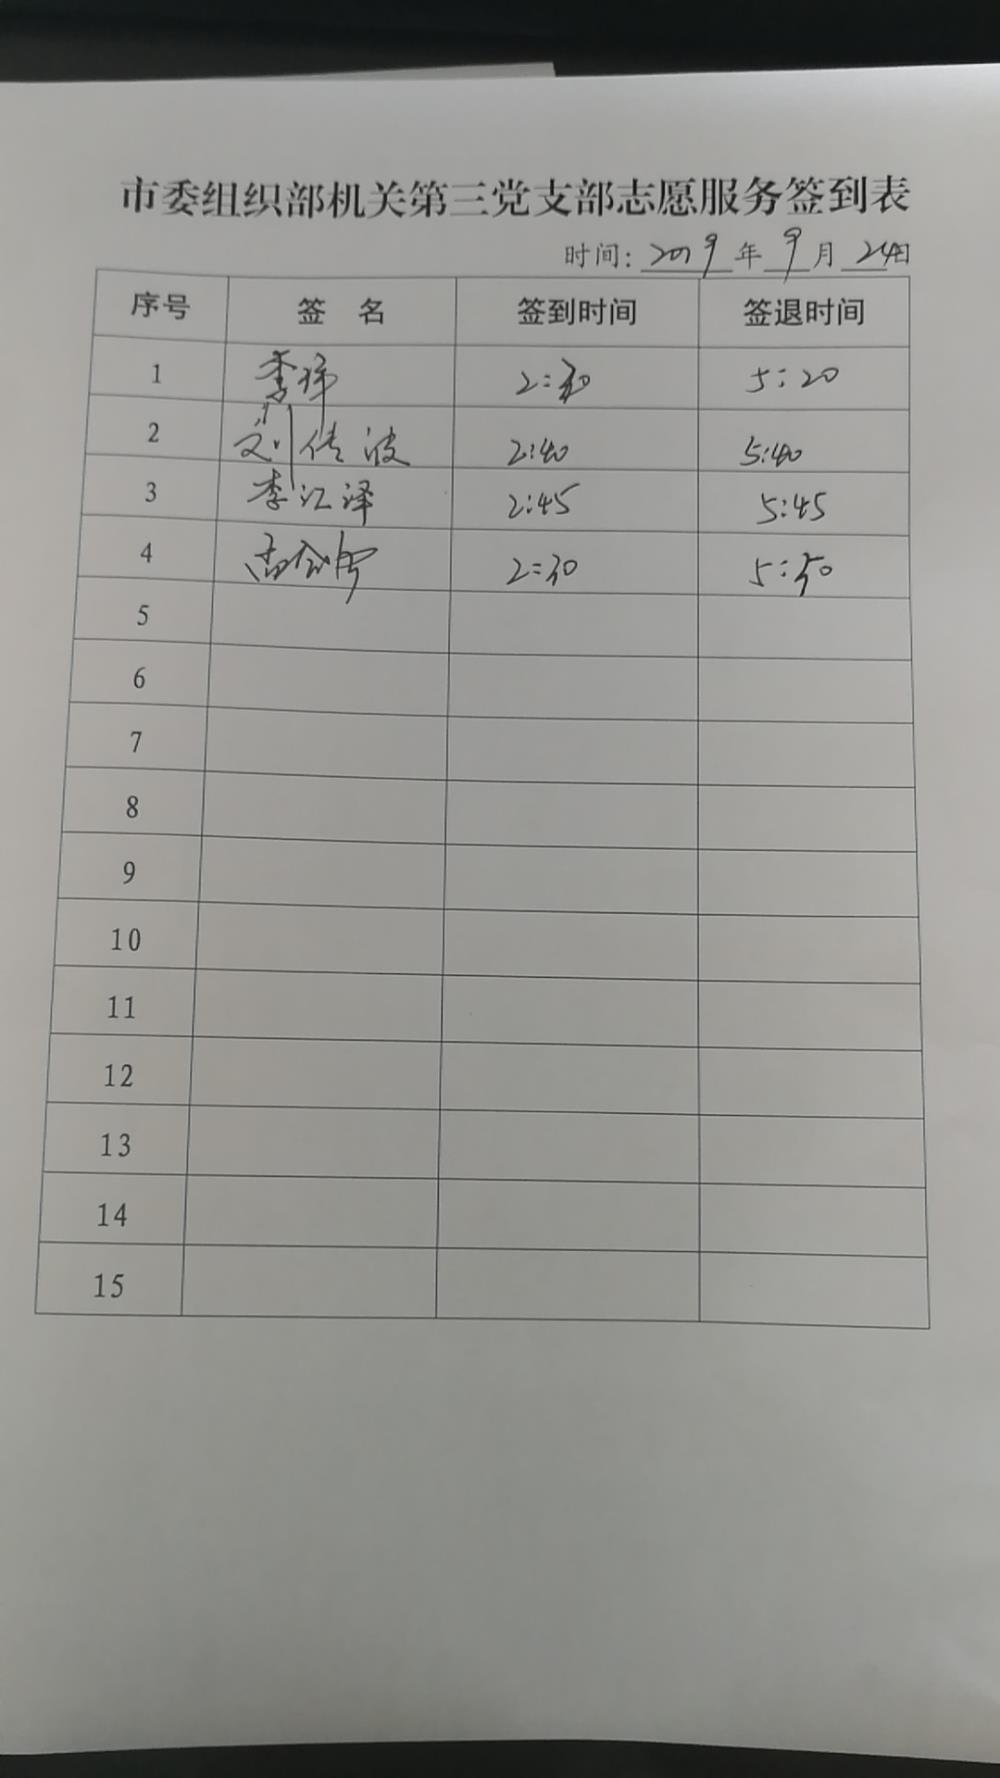 市委组织部机关第三党支部志愿服务签到表
时间: 2019 年 9 月 24日
序号 签 名 签到时间 签退时间
1 李 2:30 5:20
2 刘传波 2:40 5:40
3 李江泽 2:45 5:45
4 2:30 5:50
5
6
7
8
9
10
11
12
13
14
15